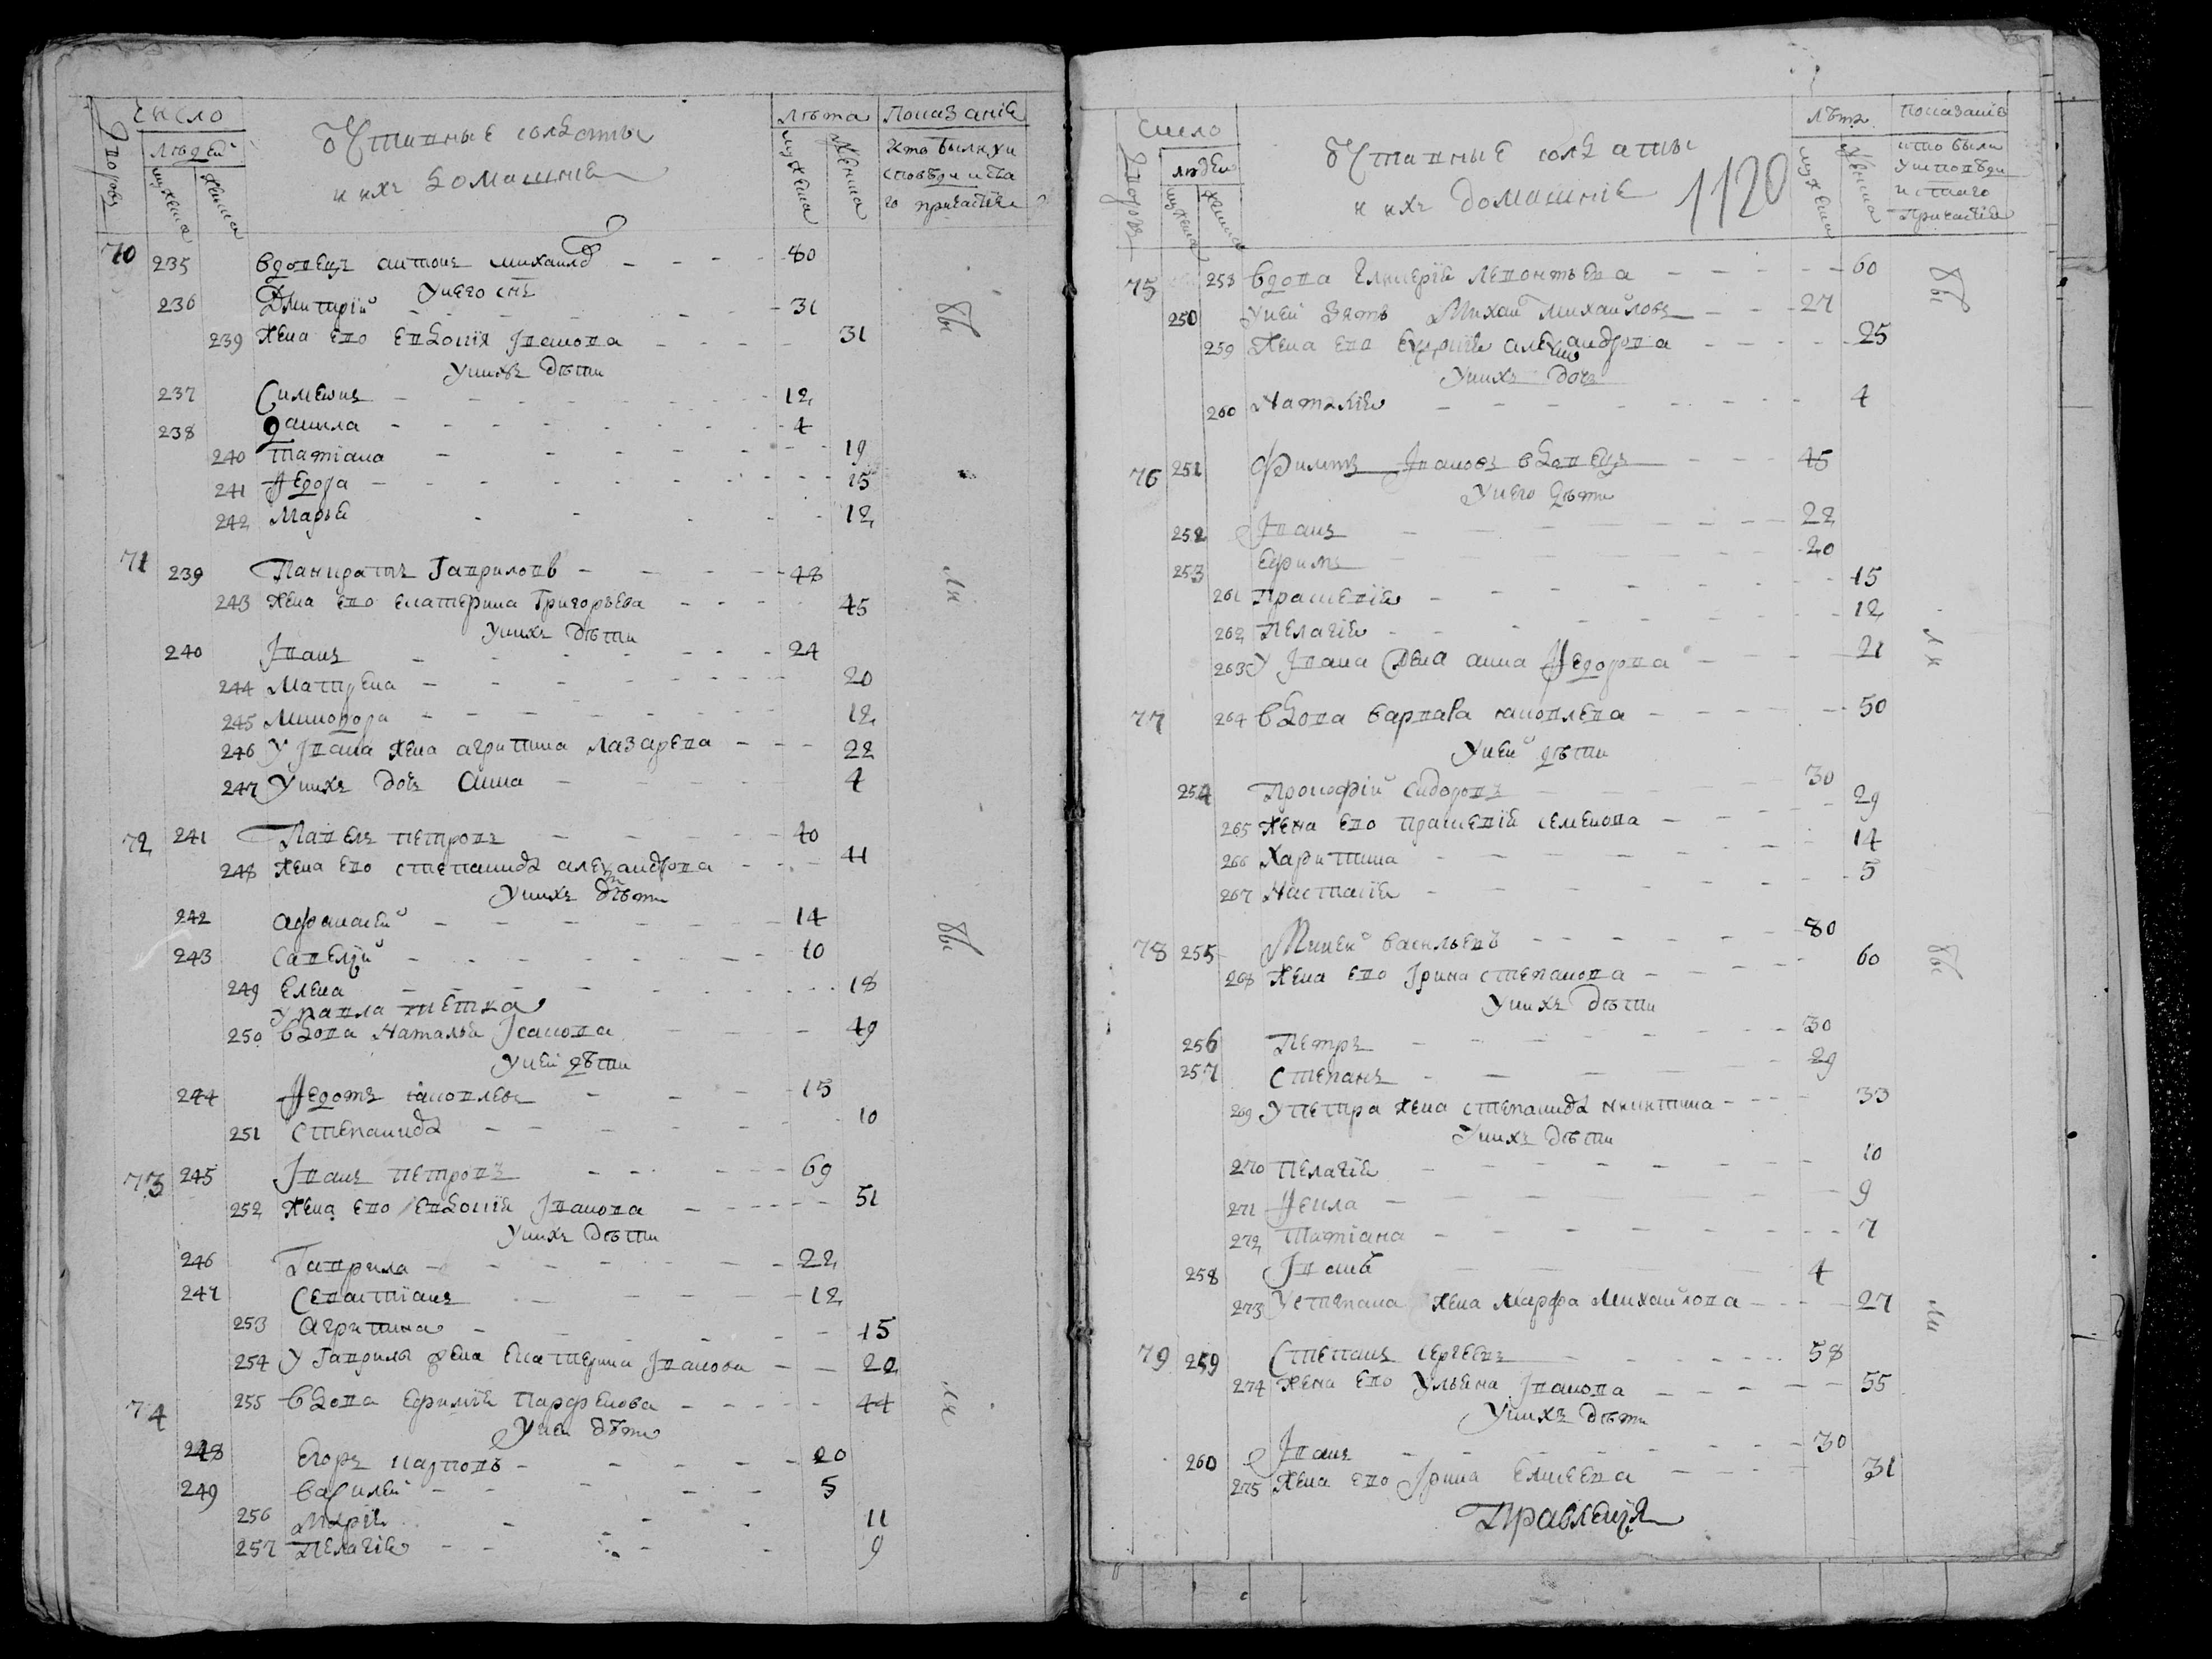 Число
Лѣта Показаніе
людей
Уставные солдаты
и ихъ домашніе
дворовъ мужеска женска
мужеска женска
Кто былъ у и
споведи и свя
го причастія
70 235 Вдовецъ Антонъ Михаиловъ 80
У него снъ
236 Дмитрій 31
239 Жена ево Евдокія Іванова 31
бы
У нихъ дѣти
237 Симеонъ 12
238 Данила 4
240 Татіана 19
241 Ѳедора 15
242 Марья 12
71 239 Панкратъ Гавриловъ 48
243 Жена ево Екатерина Григорьева 45
У нихъ дѣти
240 Іванъ 24
244 Матрена 20
245 Минодора 12
246 У Івана жена Агрипина Лазарева 22
247 У нихъ дочь Анна 4
72 241 Павелъ Петровъ 40
248 Жена ево Степанида Александрова 41
У нихъ дѣти
242 Афанасей 14
бы
243 Савелій 10
249 Елена 18
У Павла тетка
250 Вдова Наталья Ісакова 49
У ней дѣти
244 Ѳедотъ Іаковлевъ 15
251 Степанида 10
73 245 Іванъ Петровъ 69
252 Жена ево Евдокія Іванова 51
У нихъ дѣти
246 Гаврила 22
247 Севастіанъ 12
253 Агрипина 15
254 У Гаврилы жена Екатерина Іванова 20
74 255 Вдова Ефимія Парфенова 44
У ней дѣти
248 Егоръ Карповъ 20
249 Василей 5
256 Марія 11
257 Пелагія 9
Число
Лѣта Показаніе
людей
Уставные солдаты
и ихъ домашніе
1120
дворовъ мужеска женска
мужеска женска
кто былъ
у исповѣди
и стаго
причастія
75 258 Вдова Гликерія Леонтьева 60
бы
250 У ней зять Михаил Михайловъ 27
259 Жена ево Александрова 25
У нихъ дочь
260 Наталія 4
76 251 Филипъ Івановъ вдовецъ 45
У него дѣти
252 Іванъ 22
253 Ефимъ 20
261 Праскевія 15
262 Пелагія 12
263 У Івана жена Анна Ѳедорова 21
77 264 Вдова Варвара Іаковлева 50
У ней дѣти
254 Прокофій Сидоровъ 30
265 Жена ево Праскевія Семенова 29
266 Харитина 14
267 Настасія 5
78 255 Михей Васильевъ 80
бы
268 Жена ево Ірина Степанова 60
У нихъ дѣти
256 Петръ 30
257 Степанъ 29
269 У Петра жена Степанида Никитина 33
У нихъ дѣти
270 Пелагія 10
271 Ѳекла 9
272 Татіана 7
258 Іванъ 4
273 У Степана жена Марфа Михайлова 27
79 259 Степанъ Сергеевъ 58
274 Жена ево Ульяна Іванова 55
У нихъ дѣти
260 Іванъ 30
275 Жена ево Ірина Елисеева 31
Правленія